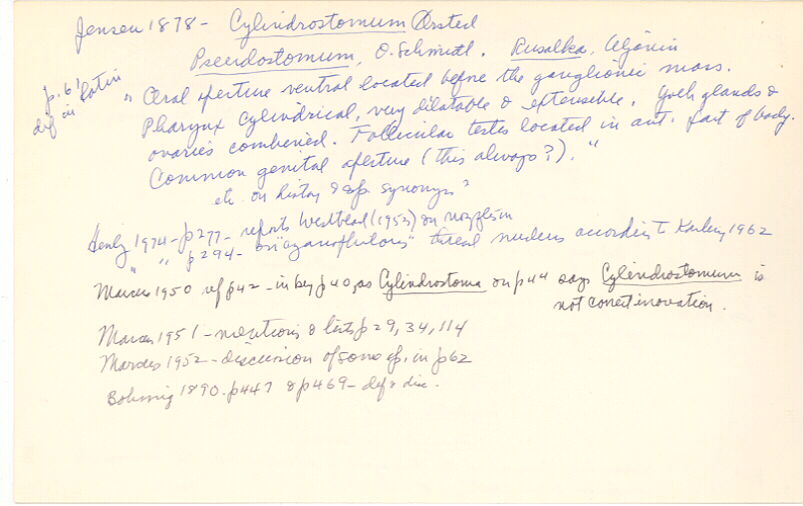 Jensen 1878 - Cylindrostomum Ørsted
Pseudostomum, O. Schmidt. Rusalka, Uljanin
p. 61
def in latin
" Oral aperture ventral located before the ganglionic mass.
Pharynx cylindrical, very dilatable & extensible. Yolk glands &
ovaries combined. Follicular testes located in ant. part of body.
Common genital aperture (this always?). "
etc. on history & sp. synonyms "
Henly 1974 - p277 - reports Westblad (1952) on
" " p294 - on "cyanophilous" thread nucleus according to Karling 1962
Marcus 1950 ref p42 - in key p40, as Cylindrostoma on p44 says Cylindrostomum is
not correct inovation.
Marcus 1951 - mentions & lists p29, 34, 114
Marcus 1952 - discussion of some sp. in p62
Bohmig 1890. p447 & p469 - def & disc.